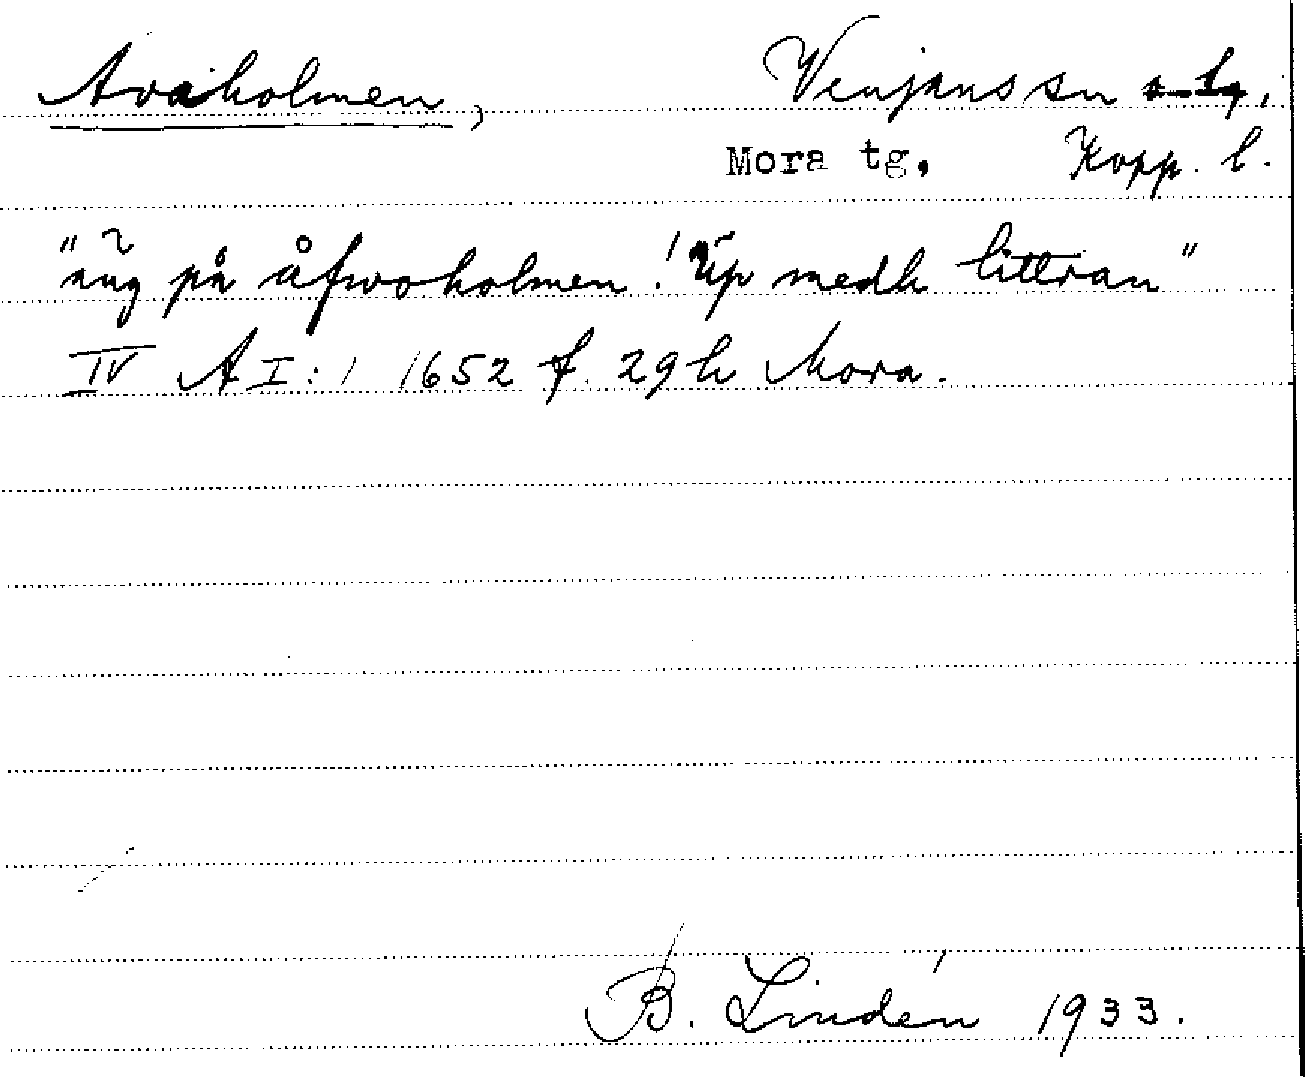 Avaholmen, Venjans sn o. tg,
Mora tg, Kopp. l.
"äng på åfwoholmen. ! Up medh littran"
IV A I:1 1652 f. 29 h Mora.
B. Lindén 1933.